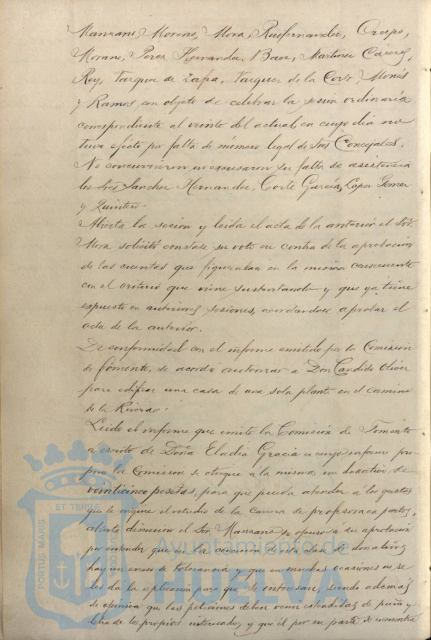 Manzano, Moreno, Mora, Ruifernandez, Crespo,
Morano, Perez Hernandez, Baez, Martinez
Rey, Vazquez de Zafra, Vazquez de la Corte,
y Ramos con objeto de celebrar la sesion ordinaria
correspondiente al veinte del actual, en cuyo dia no
tuvo efecto por falta de número legal de Sres Concejales.
No concurrieron ni excusaron su falta de asistencia
los Sres Sanchez Hernandez, Corté García, Lopez Gomez
y Quintero.
Abierta la sesion y leida el acta de la anterior el Sor
Mora solicitó constase su voto en contra de la aprobacion
de las cuentas que figuraban en la misma consecuente
con el criterio que viene sustentando y que ya tiene
expuesto en anteriores sesiones, acordandose aprobar el
acta de la anterior.
De conformidad con el informe emitido por la Comision
de Fomento, se acordó autorizar a Don Candido Oliver
para edificar una casa de una sola planta en el camino
de la
Leido el informe que emite la Comision de Fomento
a escrito de Doña Eladia Gracia a cuyo informe pro-
pone la Comision se otorgue a la misma un donativo de
veinticinco pesetas, para que pueda atender a los gastos
que le origine el estudio de la carrera de profesora en partos,
abierta discusion el Sor Manzano se opuso a su aprobacion
por entender que en la concesion de esta clase de donativos
hay un exceso de tolerancia y que en muchas ocasiones no se
les da la aplicacion para que se interesan, siendo además
de opinion que las peticiones deben venir estendidas de puño y
letra de los propios interesados, y que él por su parte se encuentra
PORTUS MARIS ET TERRÆ
Ayuntamiento de
HUELVA